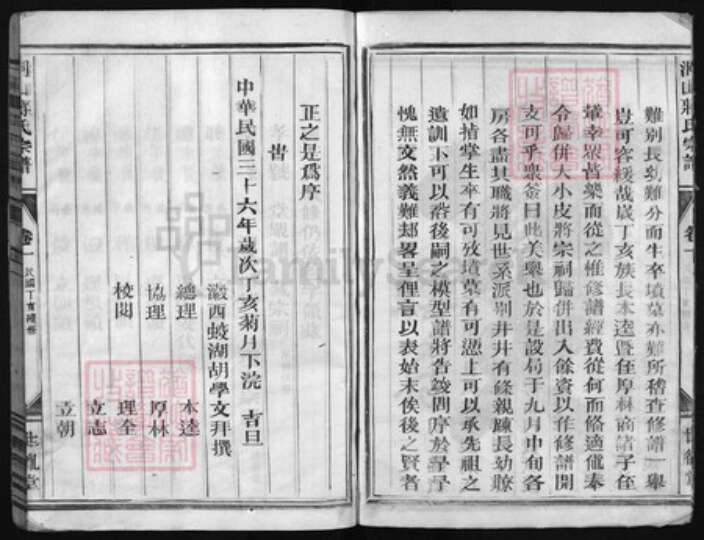 難別長幼難分而生卒墳墓亦難所稽查修譜一舉
豈可容緩哉歲丁亥族長本達暨侄厚林商諸子侄
輩幸眾皆樂而從之惟修譜經費從何而俻適值奉
令歸併大小皮將宗祠歸併出入餘資以作修譜開
支可乎衆答曰此美舉也於是設局于九月中旬各
房各盡其職將見世系派別井井有條親踈長幼瞭
如指掌生卒有可攷墳墓有可憑上可以承先祖之
遺訓下可以啓後嗣之模型譜將告竣問序於予予
愧無文然義難却畧呈俚言以表始末俟後之賢者
正之是爲序
告
中華民國三十六年歲次丁亥菊月下浣 吉旦
敿西蛟湖胡學文拜撰
總理 本達
協理 厚林
校閱 理全
立志
立朝
洞山蔣氏宗譜
卷一
民國丁亥續修